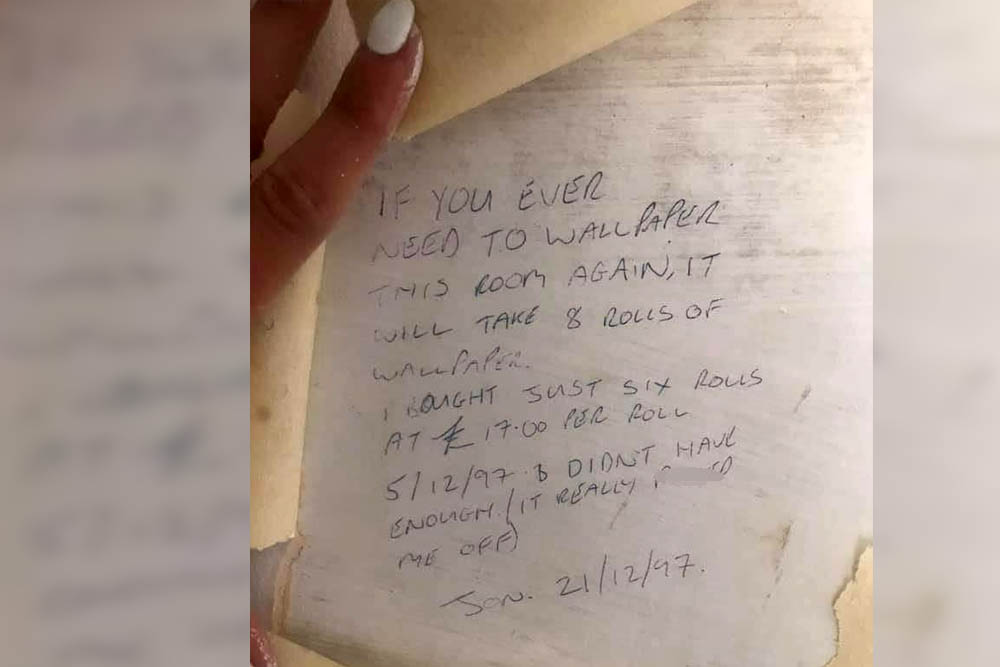 IF YOU EVER
NEED TO WALLPAPER
THIS ROOM AGAIN, IT
WILL TAKE 8 ROLLS OF
WALLPAPER.
I BOUGHT JUST SIX ROLLS
AT £17.00 PER ROLL
5/12/97 & DIDN'T HAVE
ENOUGH. (IT REALLY
ME OFF)
JON. 21/12/97.